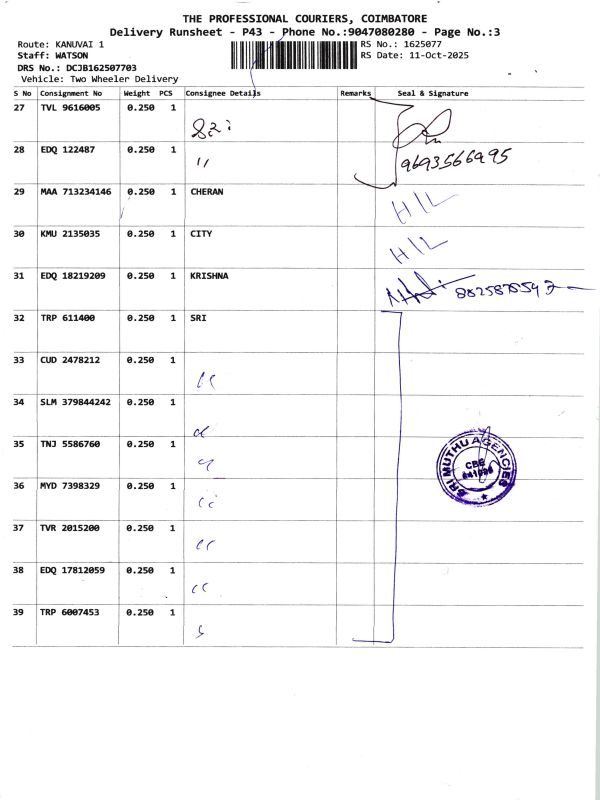 THE PROFESSIONAL COURIERS, COIMBATORE
Delivery Runsheet - P43 - Phone No.:9047080280 - Page No.:3
Route: KANUVAI 1 RS No.: 1625077
Staff: WATSON RS Date: 11-Oct-2025
DRS No.: DCJB162507703
Vehicle: Two Wheeler Delivery
S No Consignment No Weight PCS Consignee Details Remarks Seal & Signature
27 TVL 9616005 0.250 1
28 EDQ 122487 0.250 1 " 9693566995
29 MAA 713234146 0.250 1 CHERAN HIL
30 KMU 2135035 0.250 1 CITY HIL
31 EDQ 18219209 0.250 1 KRISHNA
32 TRP 611400 0.250 1 SRI
33 CUD 2478212 0.250 1 "
34 SLM 379844242 0.250 1
35 TNJ 5586760 0.250 1
36 MYD 7398329 0.250 1 "
37 TVR 2015200 0.250 1 "
38 EDQ 17812059 0.250 1 "
39 TRP 6007453 0.250 1
SRI MUTHU AGENCIES
CBE